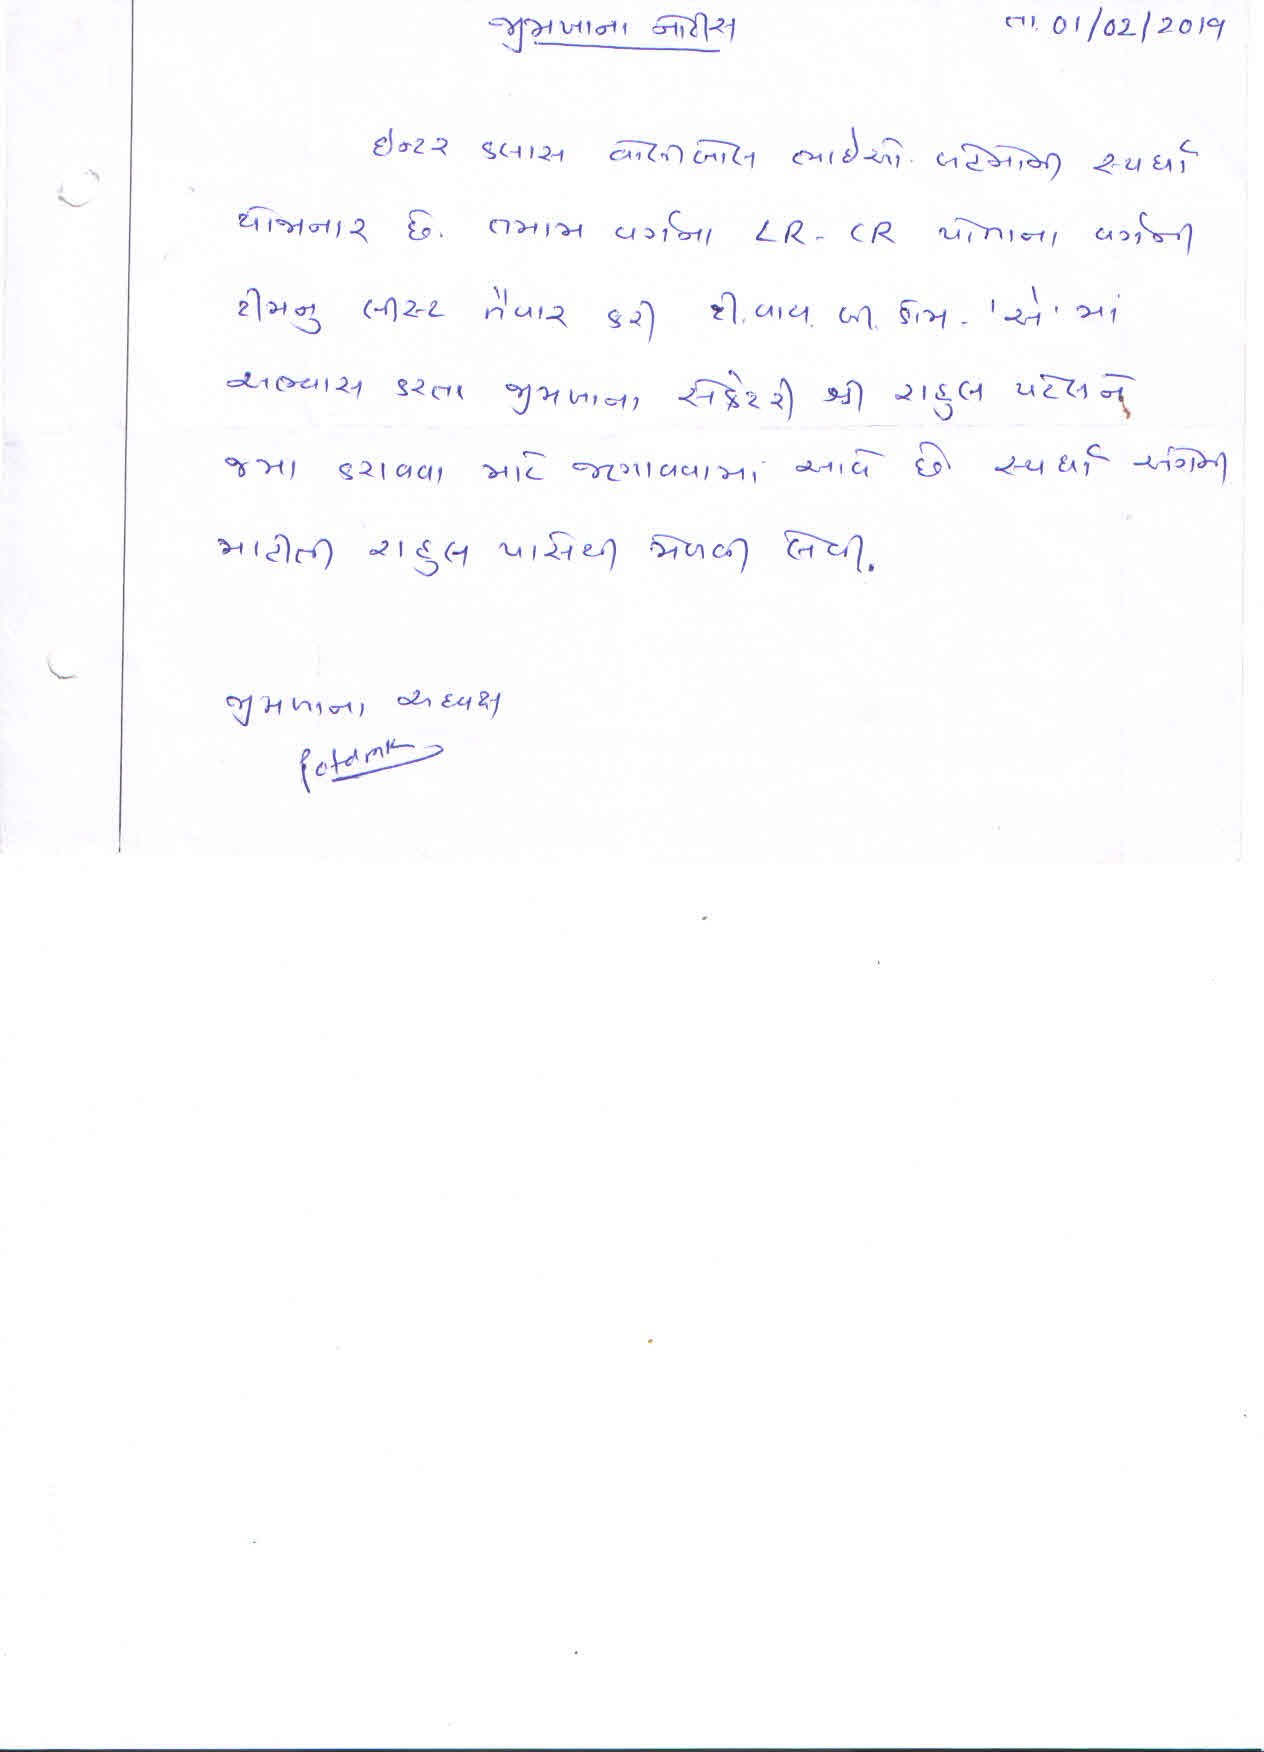 જીમખાના નોટીસ તા. 01/02/2019
ઇન્ટર કલાસ વોલીબોલ ભાઇઓ. બહેનોની સ્પર્ધા
યોજનાર છે. તમામ વર્ગના LR - CR પોતાના વર્ગની
ટીમનુ લીસ્ટ તૈયાર કરી ટી. વાય. બી. કોમ - 'એ' માં
અભ્યાસ કરતા જીમખાના સેક્રેટરી શ્રી રાહુલ પટેલને
જમા કરાવવા માટે જણાવવામાં આવે છે સ્પર્ધા અંગેની
માહીતી રાહુલ પાસેથી મેળવી લેવી.
જીમખાના અધ્યક્ષ